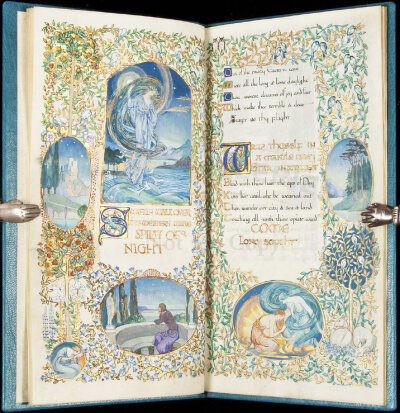 SWIFTLY WALK OVER
THE WESTERN WAVE
SPIRIT OF
NIGHT
Out of the misty Eastern cave
Where all the long & lone daylight
Thou wovest dreams of joy and fear
Which make thee terrible & dear
Swift be thy flight
WRAP THYSELF IN
A MANTLE GREY
STAR INWROUGHT
Blind with thine hair the eyes of Day
Kiss her until she be wearied out
Then wander o'er city & sea & land
Touching all with thine opiate wand
COME
Long sought